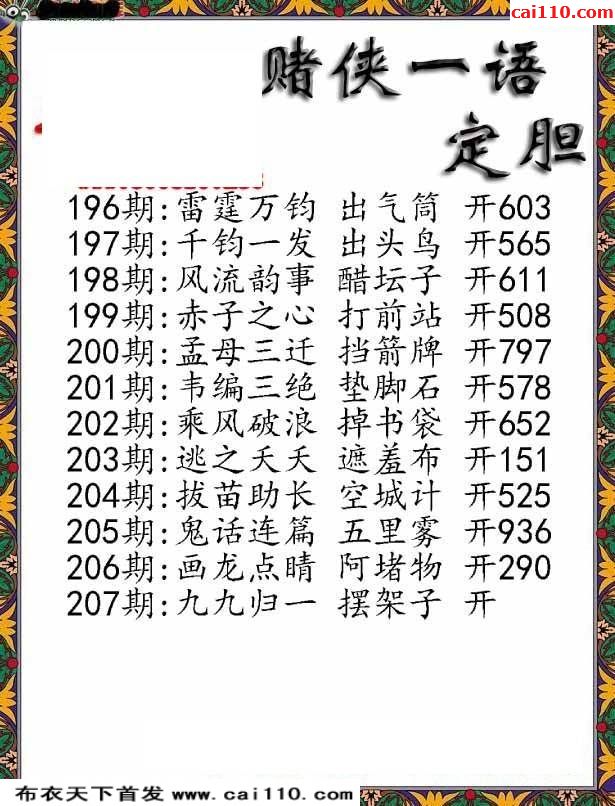 cai110.com
赌侠一语
定胆
196期:雷霆万钧 出气筒 开603
197期:千钧一发 出头鸟 开565
198期:风流韵事 醋坛子 开611
199期:赤子之心 打前站 开508
200期:孟母三迁 挡箭牌 开797
201期:韦编三绝 垫脚石 开578
202期:乘风破浪 掉书袋 开652
203期:逃之夭夭 遮羞布 开151
204期:拔苗助长 空城计 开525
205期:鬼话连篇 五里雾 开936
206期:画龙点睛 阿堵物 开290
207期:九九归一 摆架子 开
布衣天下首发 www.cai110.com